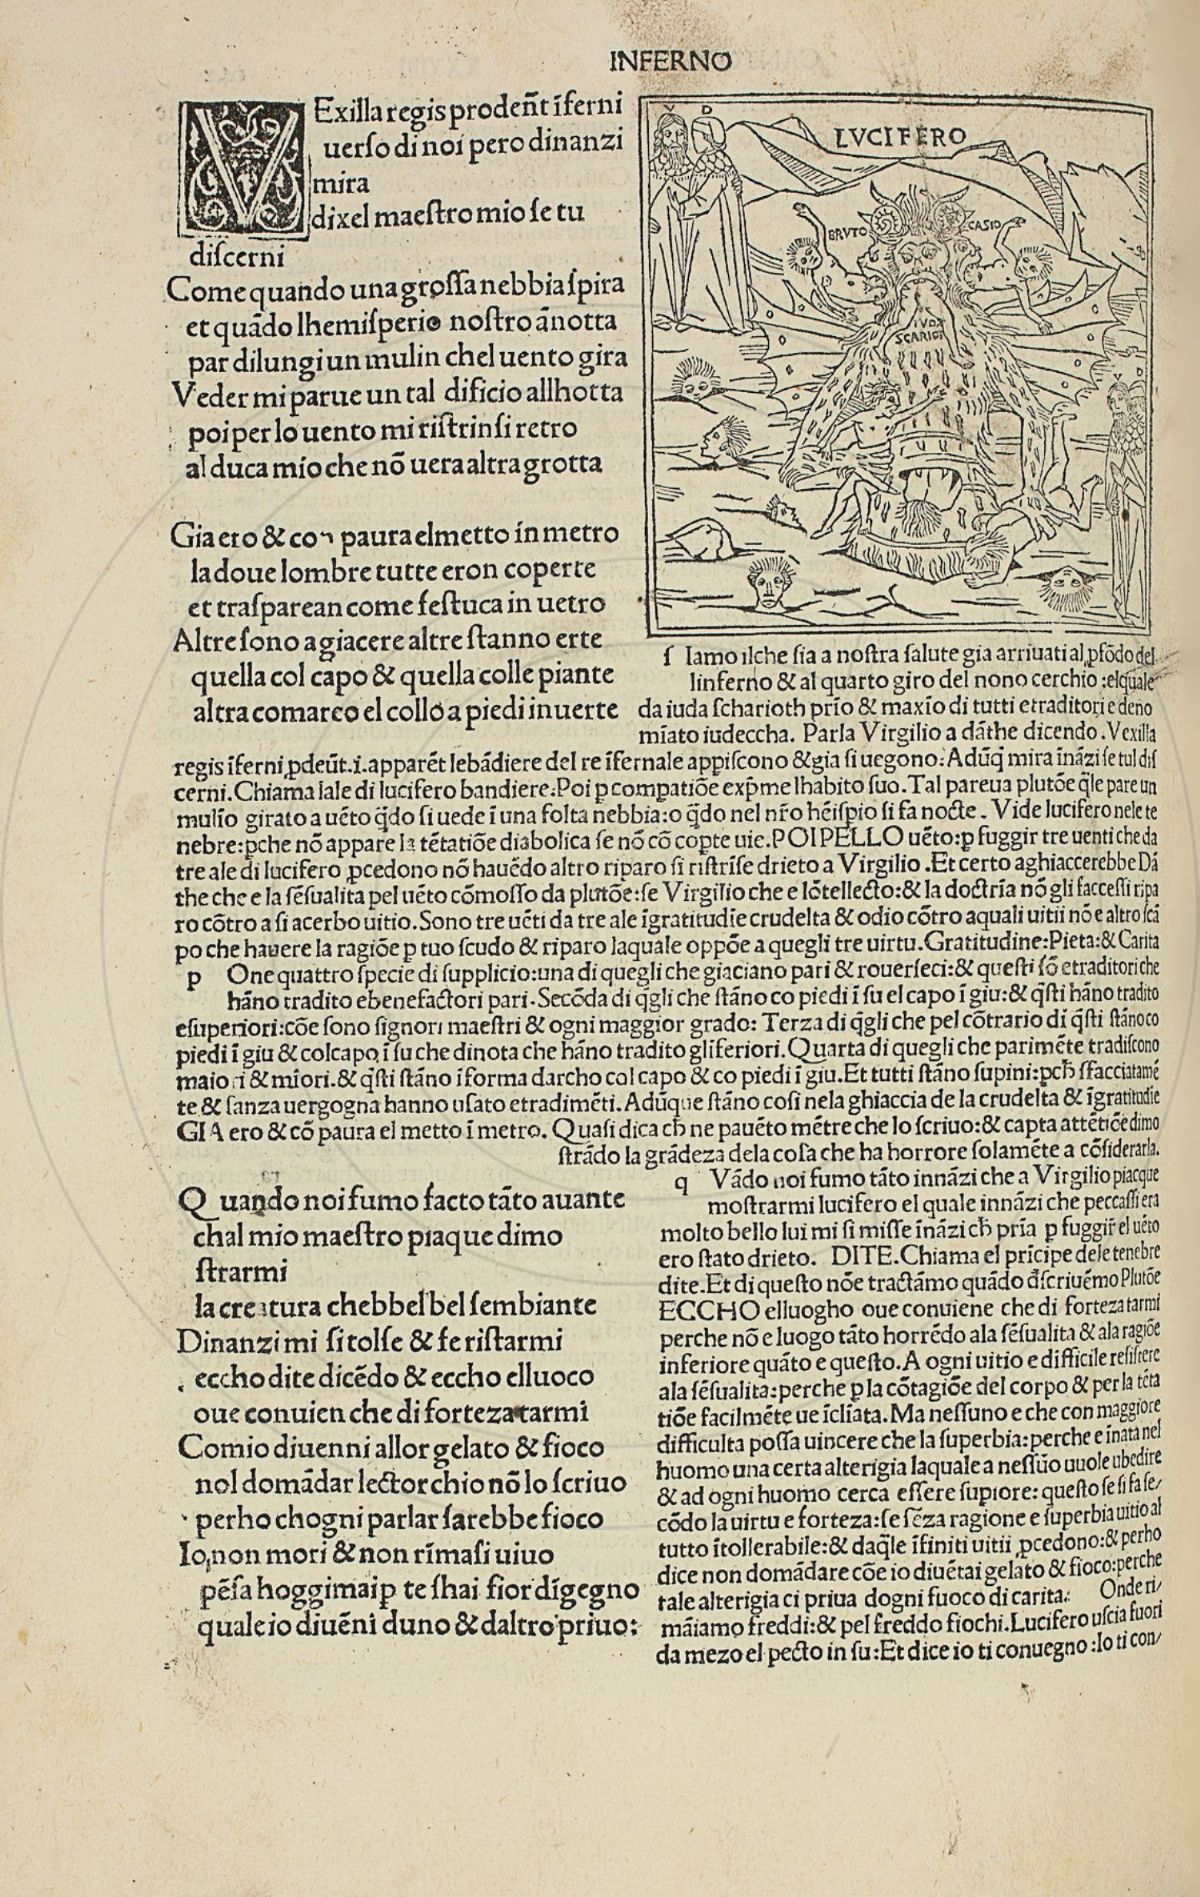 INFERNO
VExilla regis prodeñt ĩferni
uerſo di noi pero dinanzi
mira
dixel maeſtro mio ſe tu
diſcerni
Come quando una groſſa nebbia ſpira
et quãdo lhemiſperio noſtro ãnotta
par di lungi un mulin chel uento gira
Veder mi parue un tal dificio allhotta
poi per lo uento mi riſtrinſi retro
al duca mio che nõ uera altra grotta
Gia ero & con paura el metto in metro
la doue lombre tutte eron coperte
et traſparean come feſtuca in uetro
Altre ſono a giacere altre ſtanno erte
quella col capo & quella colle piante
altra com arco el collo a piedi inuerte
V D
LVCIFERO
BRVTO
CASIO
IVDA
SCARIOT
V D
ſ Iamo ilche ſia a noſtra ſalute gia arriuati al ꝓfõdo del
linferno & al quarto giro del nono cerchio :elquale
da iuda ſcharioth prĩo & maxĩo di tutti e traditori e deno
mĩato iudeccha. Parla Virgilio a dãthe dicendo. Vexilla
regis ĩferni ꝓdeũt.i.apparẽt le bãdiere del re ĩfernale appiſcono & gia ſi uegono: Adũq̃ mira ĩnãzi ſe tul diſ
cerni. Chiama lale di lucifero bandiere: Poi ꝑ compatiõe exp̃me lhabito ſuo. Tal pareua plutõe q̃le pare un
mulĩo girato a uẽto q̃do ſi uede ĩ una folta nebbia: o q̃do nel nr̃o hẽiſpio ſi fa nocte. Vide lucifero nele te
nebre: ꝑche nõ appare la tẽtatiõe diabolica ſe nõ cõ copte uie. POI PELLO uẽto: ꝑ fuggir tre uenti che da
tre ale di lucifero ꝓcedono nõ hauẽdo altro riparo ſi riſtrĩſe drieto a Virgilio. Et certo aghiaccerebbe Dã
the che e la ſẽſualita pel uẽto cõmoſſo da plutõe: ſe Virgilio che e lõtellecto: & la doctrĩa nõ gli faceſſi ripa
ro cõtro a ſi acerbo uitio. Sono tre uẽti da tre ale ĩgratitudĩe crudelta & odio cõtro a quali uitii nõ e altro ſcã
po che hauere la ragiõe ꝑ tuo ſcudo & riparo laquale oppõe a quegli tre uirtu. Gratitudine: Pieta: & Carita
p One quattro ſpecie di ſupplicio: una di quegli che giaciano pari & rouerſeci: & queſti ſõ e traditori che
hãno tradito e benefactori pari. Secõda di q̃gli che ſtãno co piedi ĩ ſu el capo ĩ giu: & q̃ſti hãno tradito
e ſuperiori: cõe ſono ſignori maeſtri & ogni maggior grado: Terza di q̃gli che pel cõtrario di q̃ſti ſtãno co
piedi ĩ giu & col capo ĩ ſu che dinota che hãno tradito gliferiori. Quarta di quegli che parimẽte tradiſcono
maiori & mĩori. & q̃ſti ſtãno ĩ forma darcho col capo & co piedi ĩ giu. Et tutti ſtãno ſupini: ꝑch̃ ſfacciatamẽ
te & ſanza uergogna hanno uſato e tradimẽti. Adũque ſtãno coſi nela ghiaccia de la crudelta & ĩgratitudĩe
GIA ero & cõ paura el metto ĩ metro. Quaſi dica ch̃ ne pauẽto mẽtre che lo ſcriuo: & capta attẽtiõe dimo
ſtrãdo la grãdeza dela coſa che ha horrore ſolamẽte a cõſiderarla.
Quando noi fumo facto tãto auante
chal mio maeſtro piaque dimo
ſtrarmi
la creatura chebbe l bel ſembiante
Dinanzi mi ſi tolſe & fe riſtarmi
eccho dite dicẽdo & eccho elluoco
oue conuien che di forteza tarmi
Comio diuenni allor gelato & fioco
nol domãdar lector chio nõ lo ſcriuo
perho chogni parlar ſarebbe fioco
Io non mori & non rĩmaſi uiuo
pẽſa hoggimai ꝑ te ſhai fior dĩgegno
quale io diuẽni duno & daltro priuo:
q Vãdo noi fumo tãto innãzi che a Virgilio piacque
moſtrarmi lucifero el quale innãzi che peccaſſi era
molto bello lui mi ſi miſſe ĩnãzi ch̃ prĩa ꝑ fuggir̃ el uẽto
ero ſtato drieto. DITE. Chiama el prĩcipe dele tenebre
dite. Et di queſto nõe tractãmo quãdo d̃ſcriuẽmo Plutõe
ECCHO elluogho oue conuiene che di forteza tarmi
perche nõ e luogo tãto horrẽdo ala ſẽſualita & ala ragiõe
inferiore quãto e queſto. A ogni uitio e difficile reſiſtere
ala ſẽſualita: perche ꝑ la cõtagiõe del corpo & per la tẽta
tiõe facilmẽte ue ĩclĩata. Ma neſſuno e che con maggiore
difficulta poſſa uincere che la ſuperbia: perche e ĩnata nel
huomo una certa alterigia laquale a neſſũo uuole ubedire
& ad ogni huomo cerca eſſere ſupiore: queſto ſe ſi fa ſe/
cõdo la uirtu e forteza: ſe ſẽza ragione e ſuperbia uitio al
tutto ĩtollerabile: & daq̃le ĩfiniti uitii ꝓcedono: & perho
dice non domãdare cõe io diuẽtai gelato & fioco: perche
tale alterigia ci priua dogni fuoco di carita. Onde ri/
mãiamo freddi: & pel freddo fiochi. Lucifero uſcia fuori
da mezo el pecto in ſu: Et dice io ti conuegno: Io ti con/